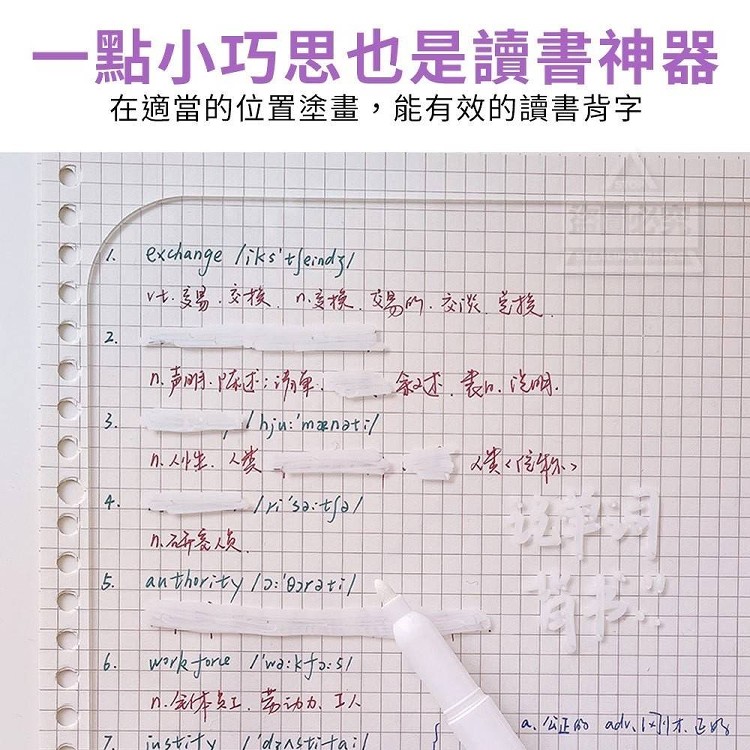 一點小巧思也是讀書神器
在適當的位置塗畫，能有效的讀書背字
1. exchange /iks'tʃeindʒ/
vt. 交易. 交换. n. 交换. 交易所. 交谈. 兑换.
2.
n. 声明. 陈述; 清单. 叙述. 表白. 说明.
3. /hju:'mænəti/
n. 人性. 人类 人类<信称>
4. /ri'sə:tʃə/
n. 研究人员.
5. authority /ɔ:'θɔrəti/
6. workforce /'wə:kfɔ:s/
n. 全体员工. 劳动力. 工人
7. justity /'dʒʌstifai/
a. 公正的 adv. 刚才. 正好
说单词
背书